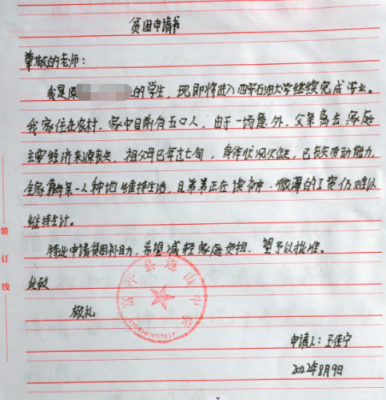 贫困申请书
尊敬的老师:
我是原 的学生,现即将进入 石油大学继续完成学业。
我家住在农村,家中目前有五口人,由于一场意外,父亲离去,家庭
主要经济来源丧失,祖父母已年过七旬,身体状况欠佳,已丧失劳动能力,
全家靠母亲一人种地维持生活,且弟弟正在读 ,微薄的工资仍难以
维持生计。
特此申请贫困补助,希望减轻家庭负担,望予以批准。
此致
敬礼
申请人:王佳宁
2022年8月9日
装订线